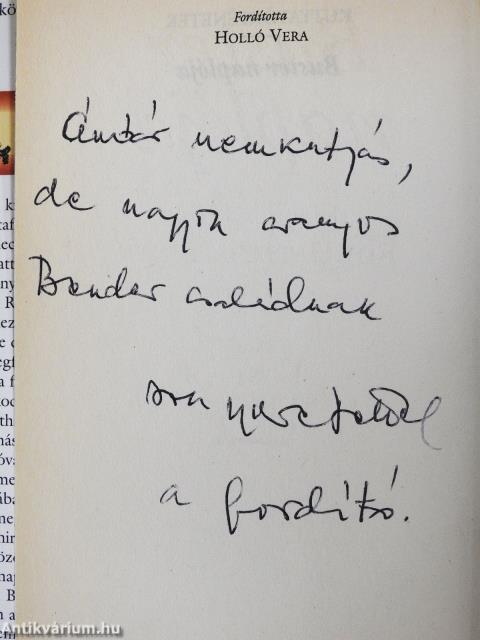 Fordította
HOLLÓ VERA
Ámbár nemkutyás,
de nagyon aranyos
Bender családnak
sok szeretettel
a fordító.
Antikvárium.hu